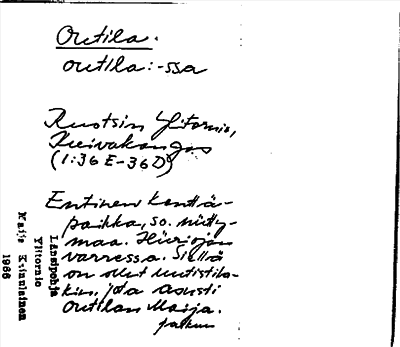 Outila.
outila: -ssa
Ruotsin Ylitornio,
Kuivakangas
(1:36 E-36 D)
Entinen kenttä-
paikka, so. niitty-
maa. Hirviojan
varressa. Siellä
on ollut uutistilakin,
jota asusti
Outilan Maija.
Länsipohja
Ylitornio
Maija Kainulainen
1986